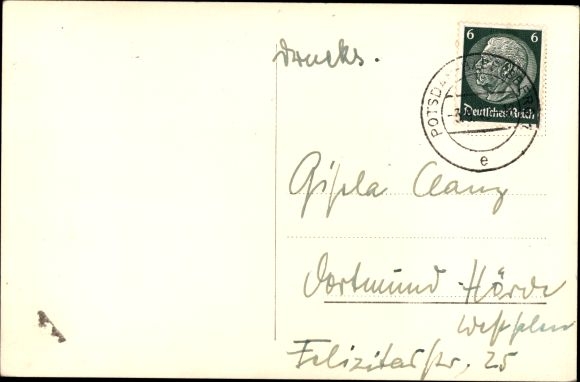 Drucks.
6 6
Deutsches Reich
POTSDAM-BABELSBERG
e
Gisela Clang
Dortmund-Hörde
Westfalen
Felizitasstr. 25